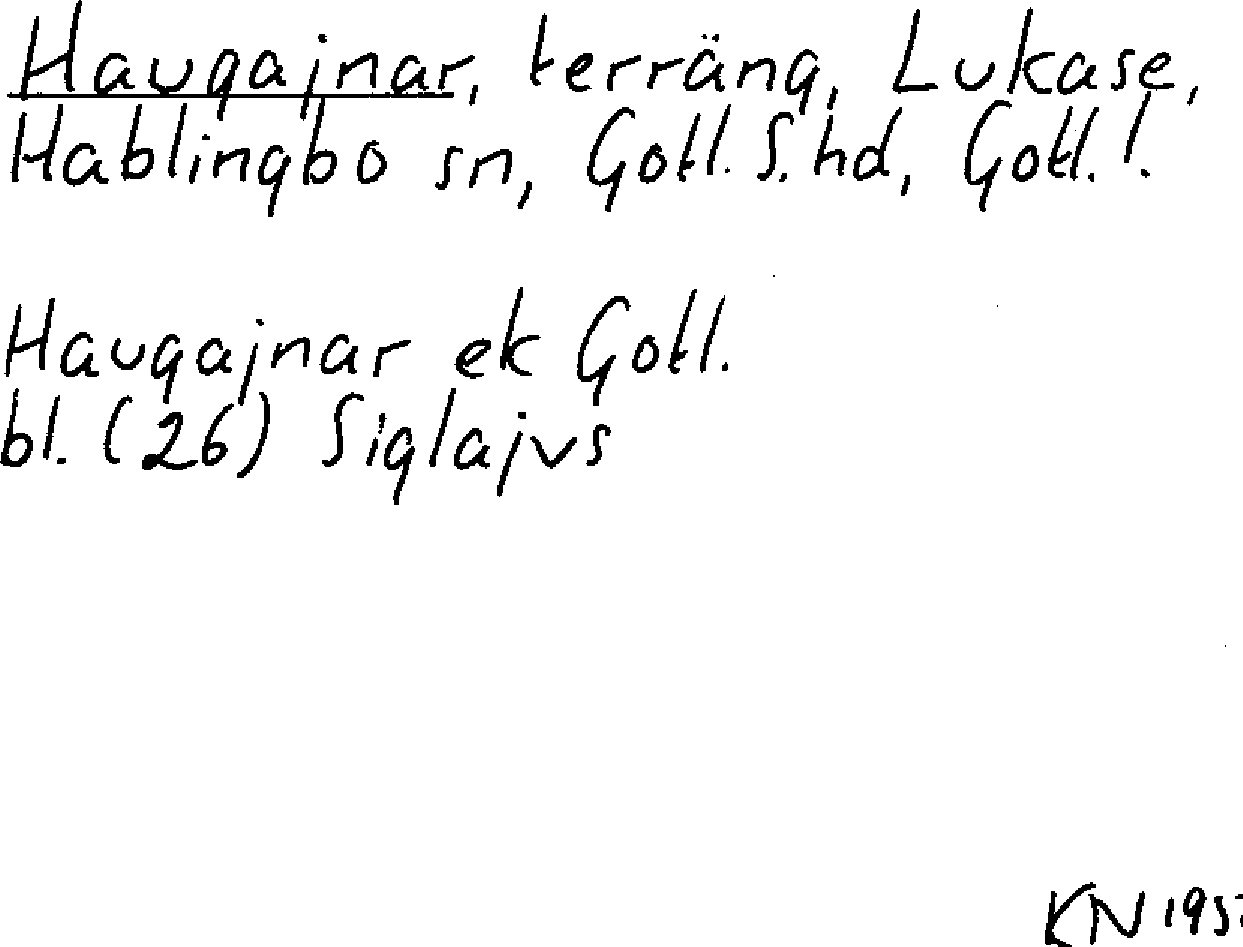 Haugajnar, terräng, Lukase,
Hablingbo sn, Gotl. S. hd, Gotl. l.
Haugajnar ek Gotl.
bl. (26) Siglajvs
KN